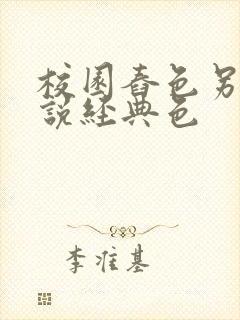 校園春色另
說經典色
李准基